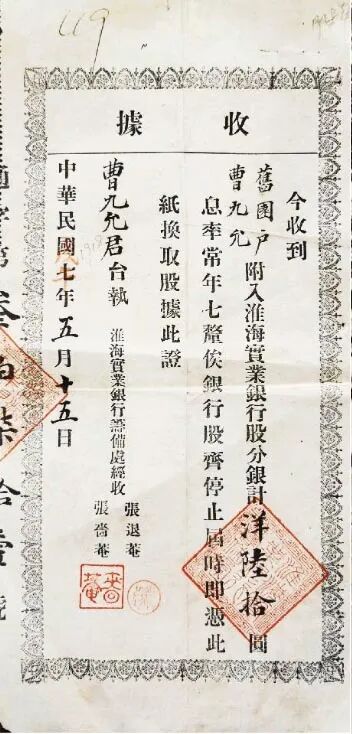 119
收據
今收到
舊團戶
曹九允
附入淮海實業銀行股分銀計洋陸拾圓
息率常年七釐俟銀行股齊停止屆時即憑此
紙換取股據此證
曹九允君台執
淮海實業銀行籌備處經收
張退菴
張嗇菴
嗇菴
中華民國七年五月十五日
戊午
1918
第叁百柒拾壹號